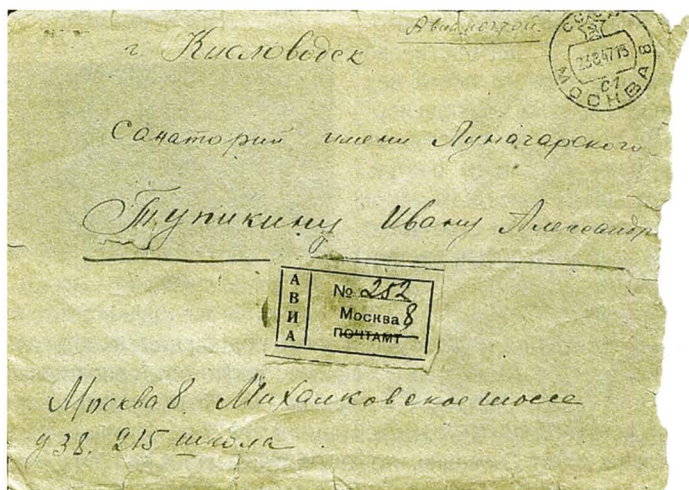 Авиапочтой.
г. Кисловодск
МОСКВА 8
23 8 47 15
Санаторий имени Луначарского
Тупикину Ивану Александр
АВИА
№ 252
Москва 8
ПОЧТАМТ
Москва 8. Михалковское шоссе
д 38. 215 школа.